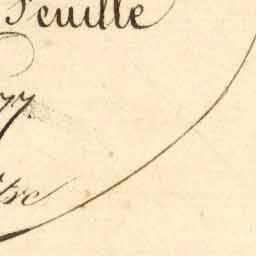 Feuille
77.
tre